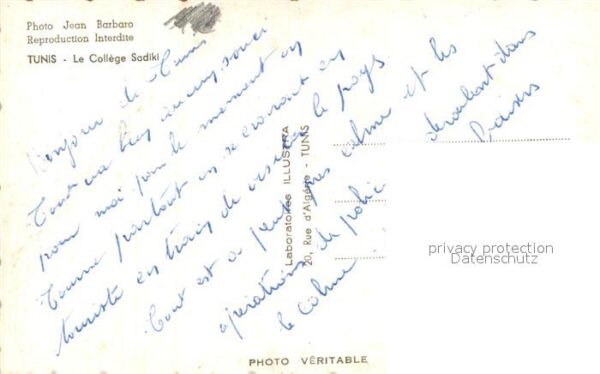 Photo Jean Barbaro
Reproduction Interdite
TUNIS - Le Collège Sadiki
Bonjour de Tunis
Tout va bien aucun souci
pour moi pour le moment on
tourne partout on se croirait en
touriste en train de visiter le pays
Tout est à peu près calme et les
opérations de police se déroulent dans
le calme
Baisers
Laboratoires ILLUSTRA
20, Rue d'Algérie - TUNIS
PHOTO VÉRITABLE
privacy protection
Datenschutz